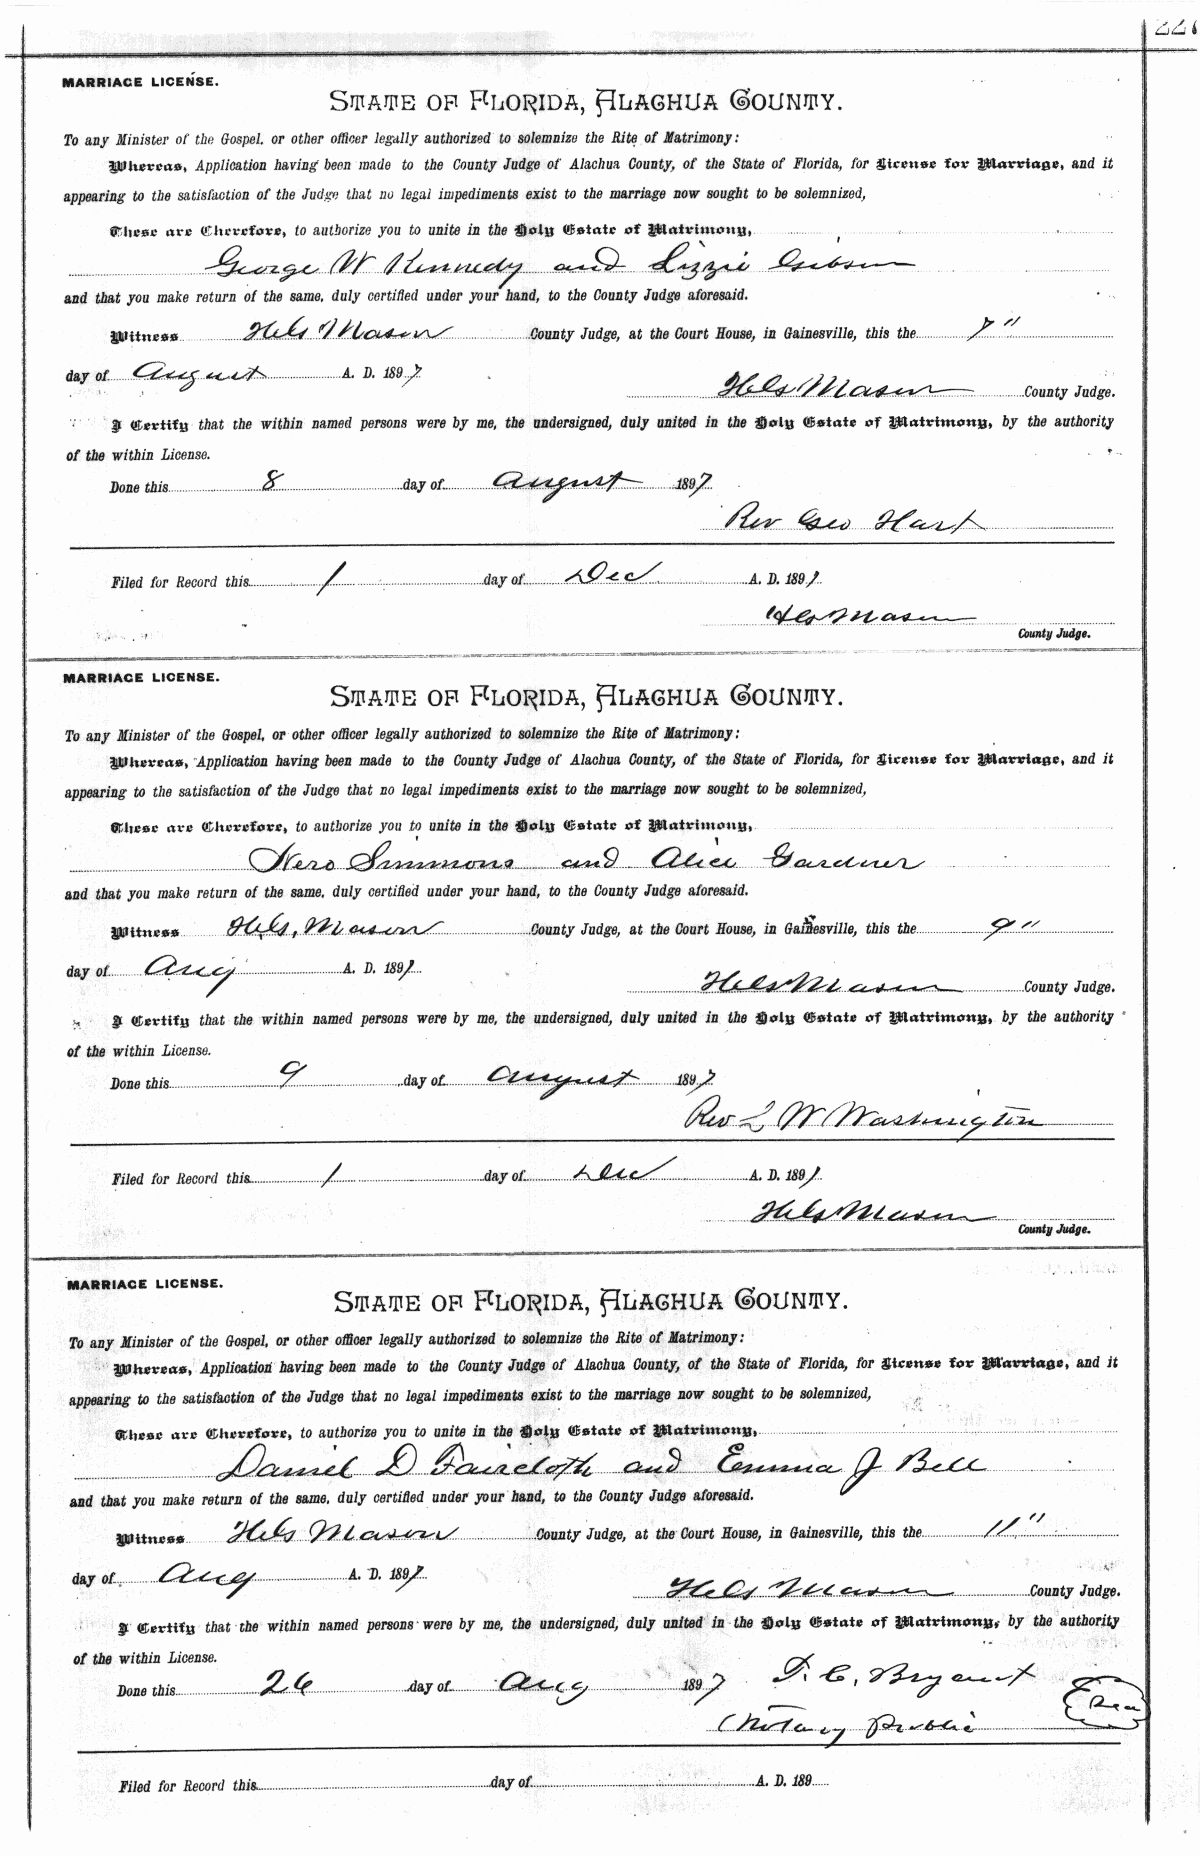 MARRIAGE LICENSE.
STATE OF FLORIDA, ALACHUA COUNTY.
To any Minister of the Gospel, or other officer legally authorized to solemnize the Rite of Matrimony:
Whereas, Application having been made to the County Judge of Alachua County, of the State of Florida, for License for Marriage, and it
appearing to the satisfaction of the Judge that no legal impediments exist to the marriage now sought to be solemnized,
These are Therefore, to authorize you to unite in the Holy Estate of Matrimony,
George W Kennedy and Lizzie Gibson
and that you make return of the same, duly certified under your hand, to the County Judge aforesaid.
Witness Hels Mason County Judge, at the Court House, in Gainesville, this the 7"
day of August A. D. 1897
Hels Mason County Judge.
I Certify that the within named persons were by me, the undersigned, duly united in the Holy Estate of Matrimony, by the authority
of the within License.
Done this 8 day of August 1897
Rev Geo Hart
Filed for Record this 1 day of Dec A. D. 1897
Hels Mason
County Judge.
MARRIAGE LICENSE.
STATE OF FLORIDA, ALACHUA COUNTY.
To any Minister of the Gospel, or other officer legally authorized to solemnize the Rite of Matrimony:
Whereas, Application having been made to the County Judge of Alachua County, of the State of Florida, for License for Marriage, and it
appearing to the satisfaction of the Judge that no legal impediments exist to the marriage now sought to be solemnized,
These are Therefore, to authorize you to unite in the Holy Estate of Matrimony,
Nero Simmons and Alice Gardner
and that you make return of the same, duly certified under your hand, to the County Judge aforesaid.
Witness Hels, Mason County Judge, at the Court House, in Gainesville, this the 9"
day of Aug A. D. 1897
Hels Mason County Judge.
I Certify that the within named persons were by me, the undersigned, duly united in the Holy Estate of Matrimony, by the authority
of the within License.
Done this 9 day of August 1897
Rev L W Washington
Filed for Record this 1 day of Dec A. D. 1897
Hels Mason
County Judge.
MARRIAGE LICENSE.
STATE OF FLORIDA, ALACHUA COUNTY.
To any Minister of the Gospel, or other officer legally authorized to solemnize the Rite of Matrimony:
Whereas, Application having been made to the County Judge of Alachua County, of the State of Florida, for License for Marriage, and it
appearing to the satisfaction of the Judge that no legal impediments exist to the marriage now sought to be solemnized,
These are Therefore, to authorize you to unite in the Holy Estate of Matrimony,
Daniel D Faircloth and Emma J Bell
and that you make return of the same, duly certified under your hand, to the County Judge aforesaid.
Witness Hels Mason County Judge, at the Court House, in Gainesville, this the 11"
day of Aug A. D. 1897
Hels Mason County Judge.
I Certify that the within named persons were by me, the undersigned, duly united in the Holy Estate of Matrimony, by the authority
of the within License.
Done this 26 day of Aug 1897 T. C. Bryant
Notary Public
Filed for Record this day of A. D. 189